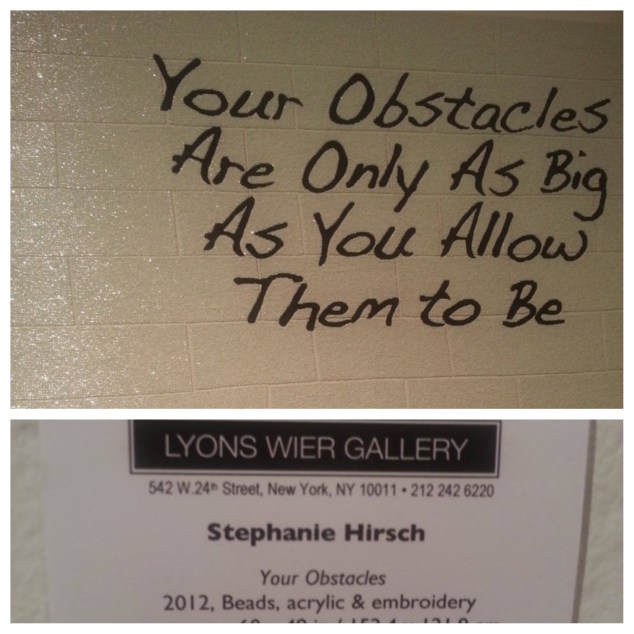 Your Obstacles
Are Only As Big
As You Allow
Them to Be
LYONS WIER GALLERY
542 W.24th Street, New York, NY 10011 • 212 242 6220
Stephanie Hirsch
Your Obstacles
2012, Beads, acrylic & embroidery